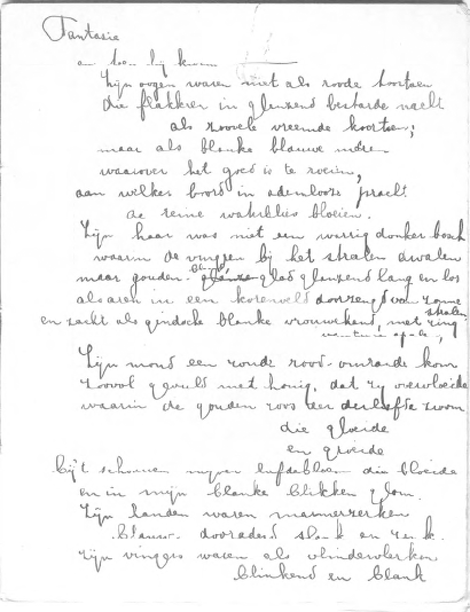 Fantasie
en toen hij kwam
Zijn oogen waren niet als roode toortsen
die flakkren in glanzend bestarde nacht
als zoovele vreemde koortsen;
maar als blanke blauwe meren
waarover het goed is te roeien,
aan welker boord in ademlooze pracht
de reine waterlelies bloeien.
Zijn haar was niet een warrig donker bosch
waarin de vingren bij het stralen dwalen
maar gouden. blond glad glanzend lang en los
als aren in een korenveld doorzengd van zonne
stralen
en zacht als gindsche blanke vrouwehand, met ring
Zijn mond een ronde rood-omrande kom
zoovol gevuld met honig, dat zij overvloeide
waarin de gouden roos der liefde zwom
die gloeide
en groeide
bij't schouwen mijner liefdebloem die bloeide
en in mijn blanke blikken glom.
Zijn handen waren marmerzerken
blauw dooraderd slank en
zijn vingers waren als vlindervlerken
blinkend en blank